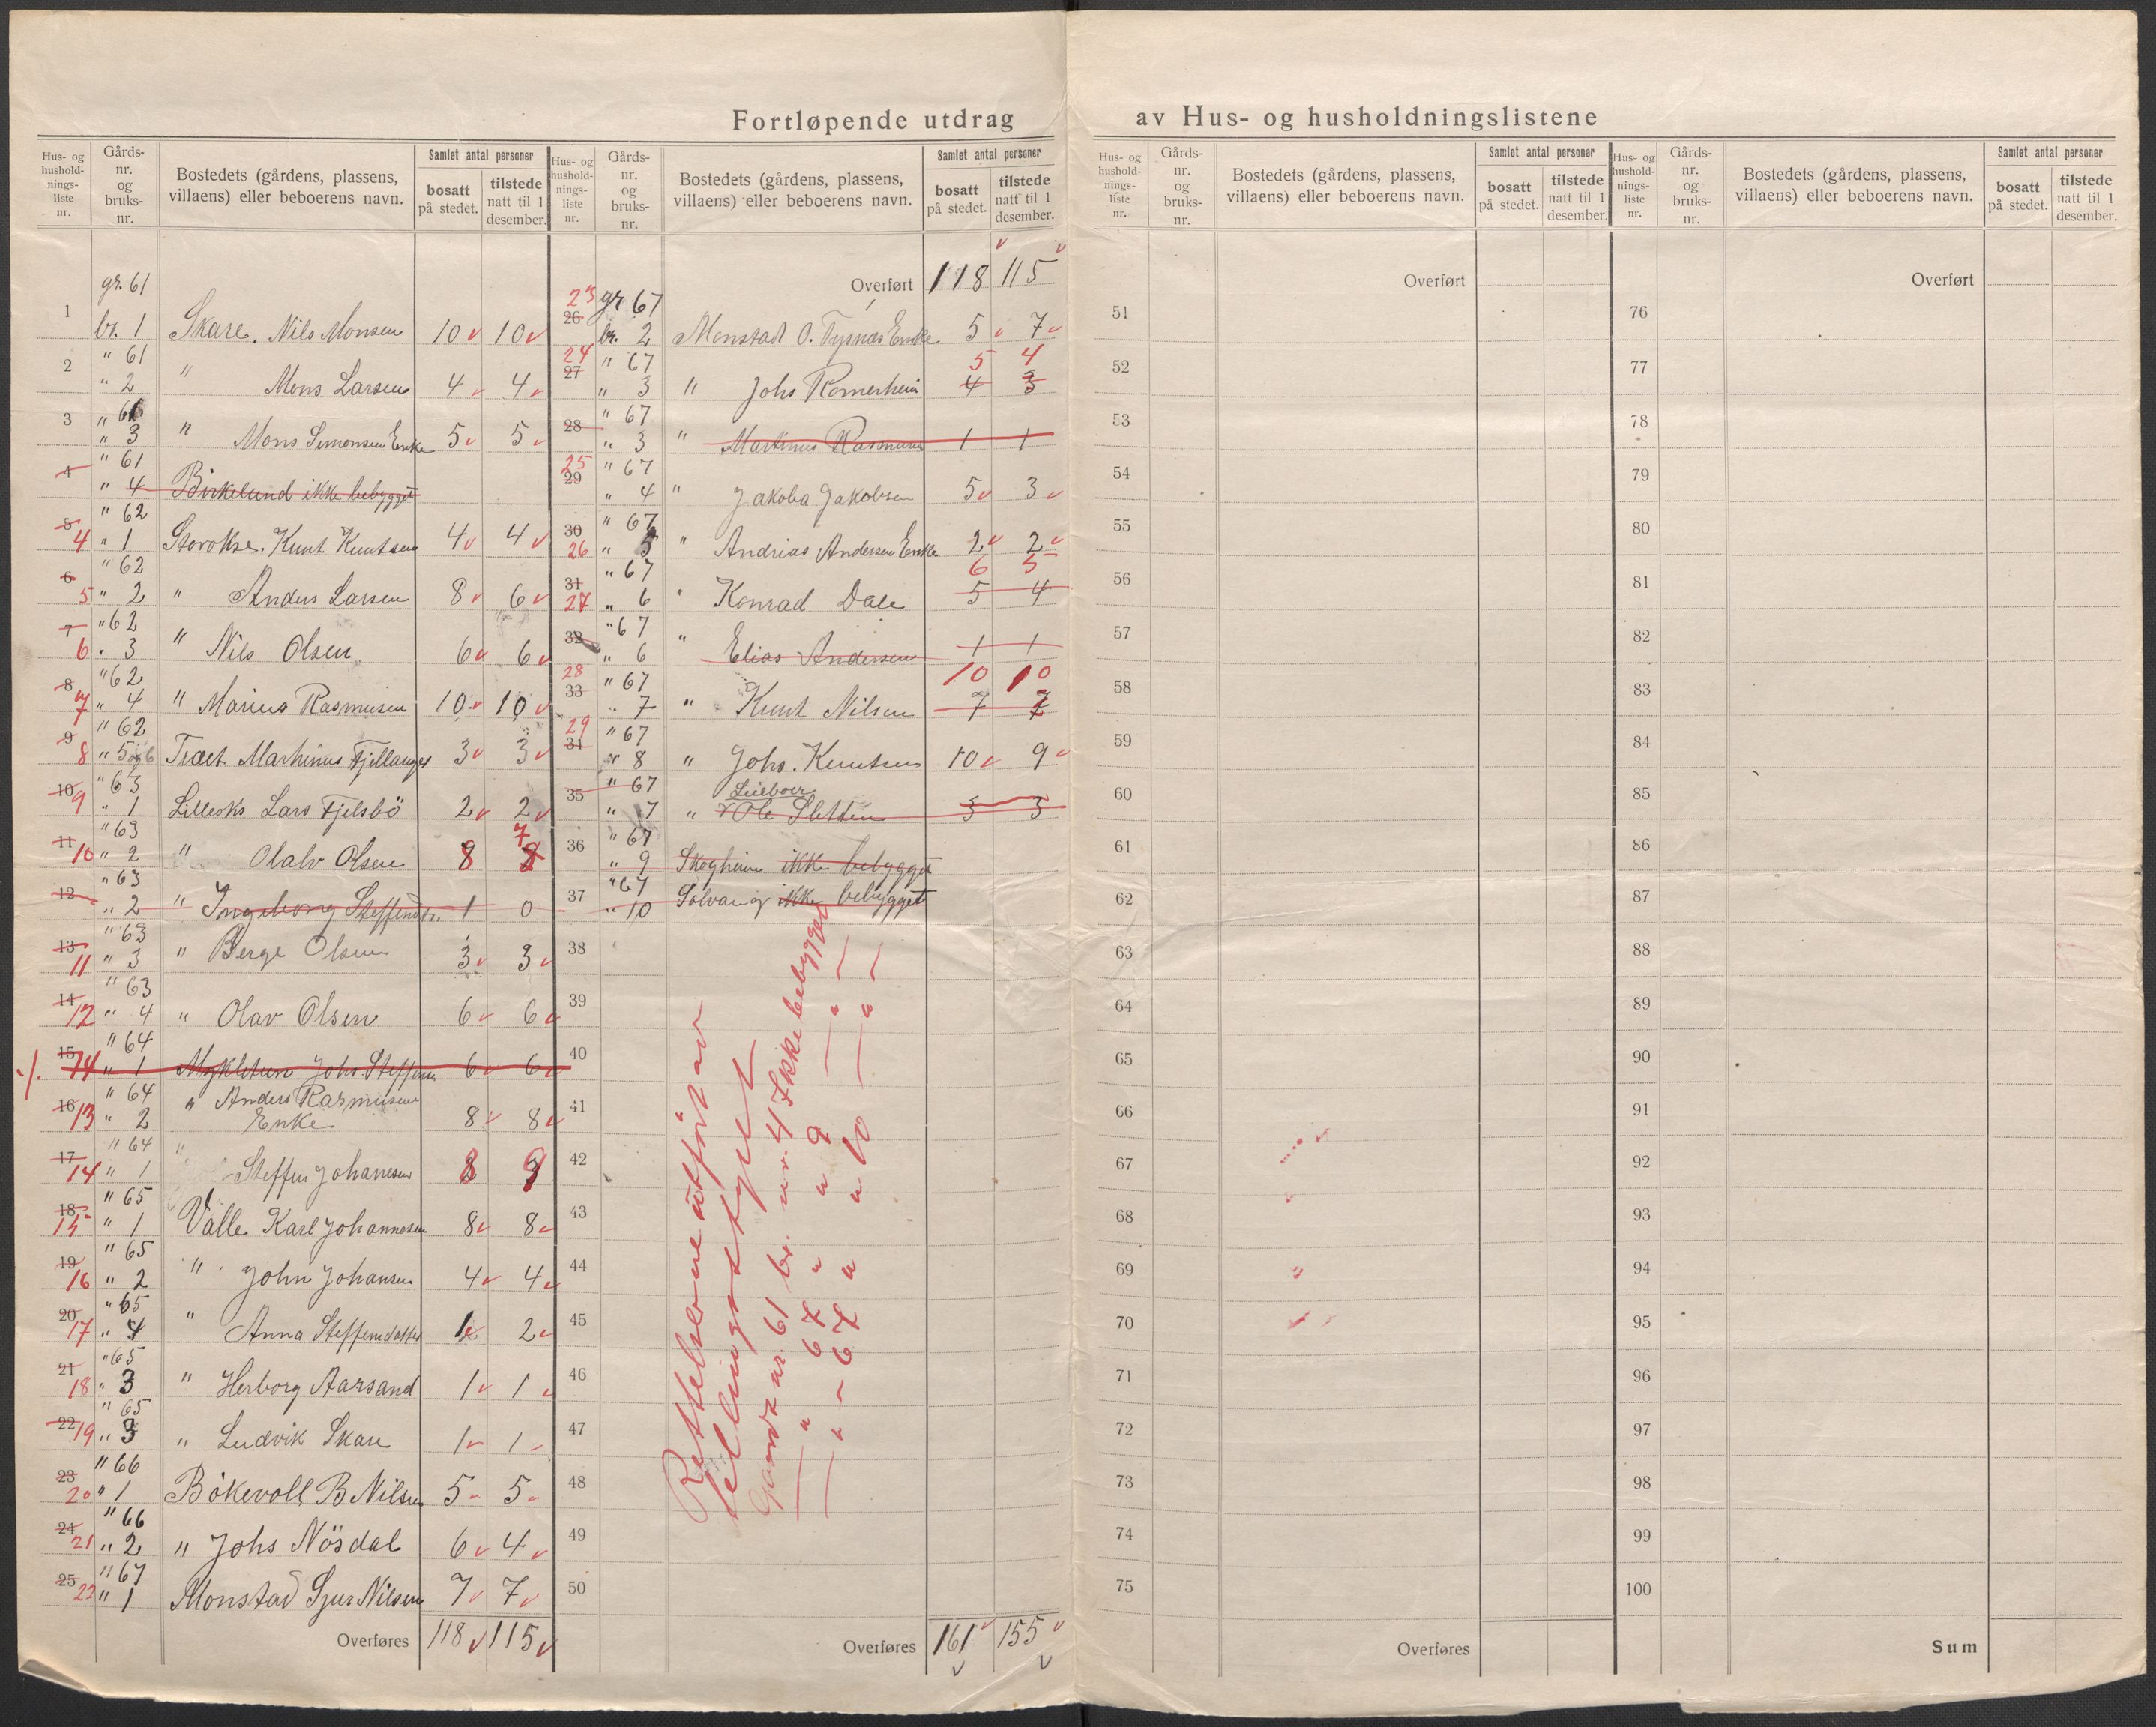 Fortløpende utdrag av Hus- og husholdningslistene
Hus- og hushold- nings- liste nr. | Gårds- nr. og bruks- nr. | Bostedets (gårdens, plassens, villaens) eller beboerens navn. | Samlet antal personer | bosatt på stedet. | tilstede natt til 1 desember.
1 gr. 61 br. 1 Skare. Nils Monsen 10 10
2 " 61 " 2 " Mons Larsen 4 4
3 " 61 " 3 " Mons Simonsen Enke 5 5
4 " 61 " 4 Birkelund ikke bebygget
5 4 " 62 " 1 Storokse. Knut Knutsen 4 4
6 5 " 62 " 2 " Anders Larsen 8 6
7 6 " 62 " 3 " Nils Olsen 6 6
8 7 " 62 " 4 " Marius Rasmusen 10 10
9 8 " 62 " 5 og 6 Træet Marthinus Fjellanger 3 3
10 9 " 63 " 1 Lilleoks Lars Fjelsbö 2 2
11 10 " 63 " 2 " Olalv Olsen 8 8 7
12 " 63 " 2 " Ingeborg Steffensdtr. 1 0
13 11 " 63 " 3 " Berge Olsen 3 3
14 12 " 63 " 4 " Olav Olsen 6 6
15 14 " 64 " 1 Mykletun Johs. Steffensen 6 6
16 13 " 64 " 2 " Anders Rasmusen Enke 8 8
17 14 " 64 " 1 " Steffen Johanesen 8 9
18 15 " 65 " 1 Valle Karl Johannesen 8 8
19 16 " 65 " 2 " John Johansen 4 4
20 17 " 65 " 4 " Anna Steffensdatter 1 2
21 18 " 65 " 3 " Herborg Aarsand 1 1
22 19 " 65 " 3 " Ludvik Skare 1 1
23 20 " 66 " 1 Bökevoll B Nilsen 5 5
24 21 " 66 " 2 " Johs Nösdal 6 4
25 22 " 67 " 1 Monstad Sjur Nilsen 7 7
Overføres 118 115
Hus- og hushold- nings- liste nr. | Gårds- nr. og bruks- nr. | Bostedets (gårdens, plassens, villaens) eller beboerens navn. | Samlet antal personer | bosatt på stedet. | tilstede natt til 1 desember.
Overført 118 115
23 26 gr 67 br. 2 Monstad O. Tysnes Enke 5 7
24 27 " 67 " 3 " Johs Romerheim 4 3 5 4
28 " 67 " 3 " Martinus Rasmusen 1 1
25 29 " 67 " 4 " Jakoba Jakobsen 5 3
30 26 " 67 " 5 " Andrias Andersen Enke 2 2
31 27 " 67 " 6 " Konrad Dale 5 4 6 5
32 " 67 " 6 " Elias Andersen 1 1
28 33 " 67 " 7 " Knut Nilsen 7 7 10 10
29 34 " 67 " 8 " Johs. Knutsen 10 9
35 " 67 " 7 " Leieboer Ole Sletten 3 3
36 " 67 " 9 Skogheim ikke bebygget
37 " 67 " 10 Solvang ikke bebygget
38
39
40
41
42
43
44
45
46
47
48
49
50
Rettelserne utført av
tellingsstyret
Gards nr. 61 br. nr. 4 Ikke bebygget
— " — 67 " " 9 — " —
— " — 67 " " 10 — " —
Overføres 161 155
Hus- og hushold- nings- liste nr. | Gårds- nr. og bruks- nr. | Bostedets (gårdens, plassens, villaens) eller beboerens navn. | Samlet antal personer | bosatt på stedet. | tilstede natt til 1 desember.
Overført
51
52
53
54
55
56
57
58
59
60
61
62
63
64
65
66
67
68
69
70
71
72
73
74
75
Overføres
Hus- og hushold- nings- liste nr. | Gårds- nr. og bruks- nr. | Bostedets (gårdens, plassens, villaens) eller beboerens navn. | Samlet antal personer | bosatt på stedet. | tilstede natt til 1 desember.
Overført
76
77
78
79
80
81
82
83
84
85
86
87
88
89
90
91
92
93
94
95
96
97
98
99
100
Sum